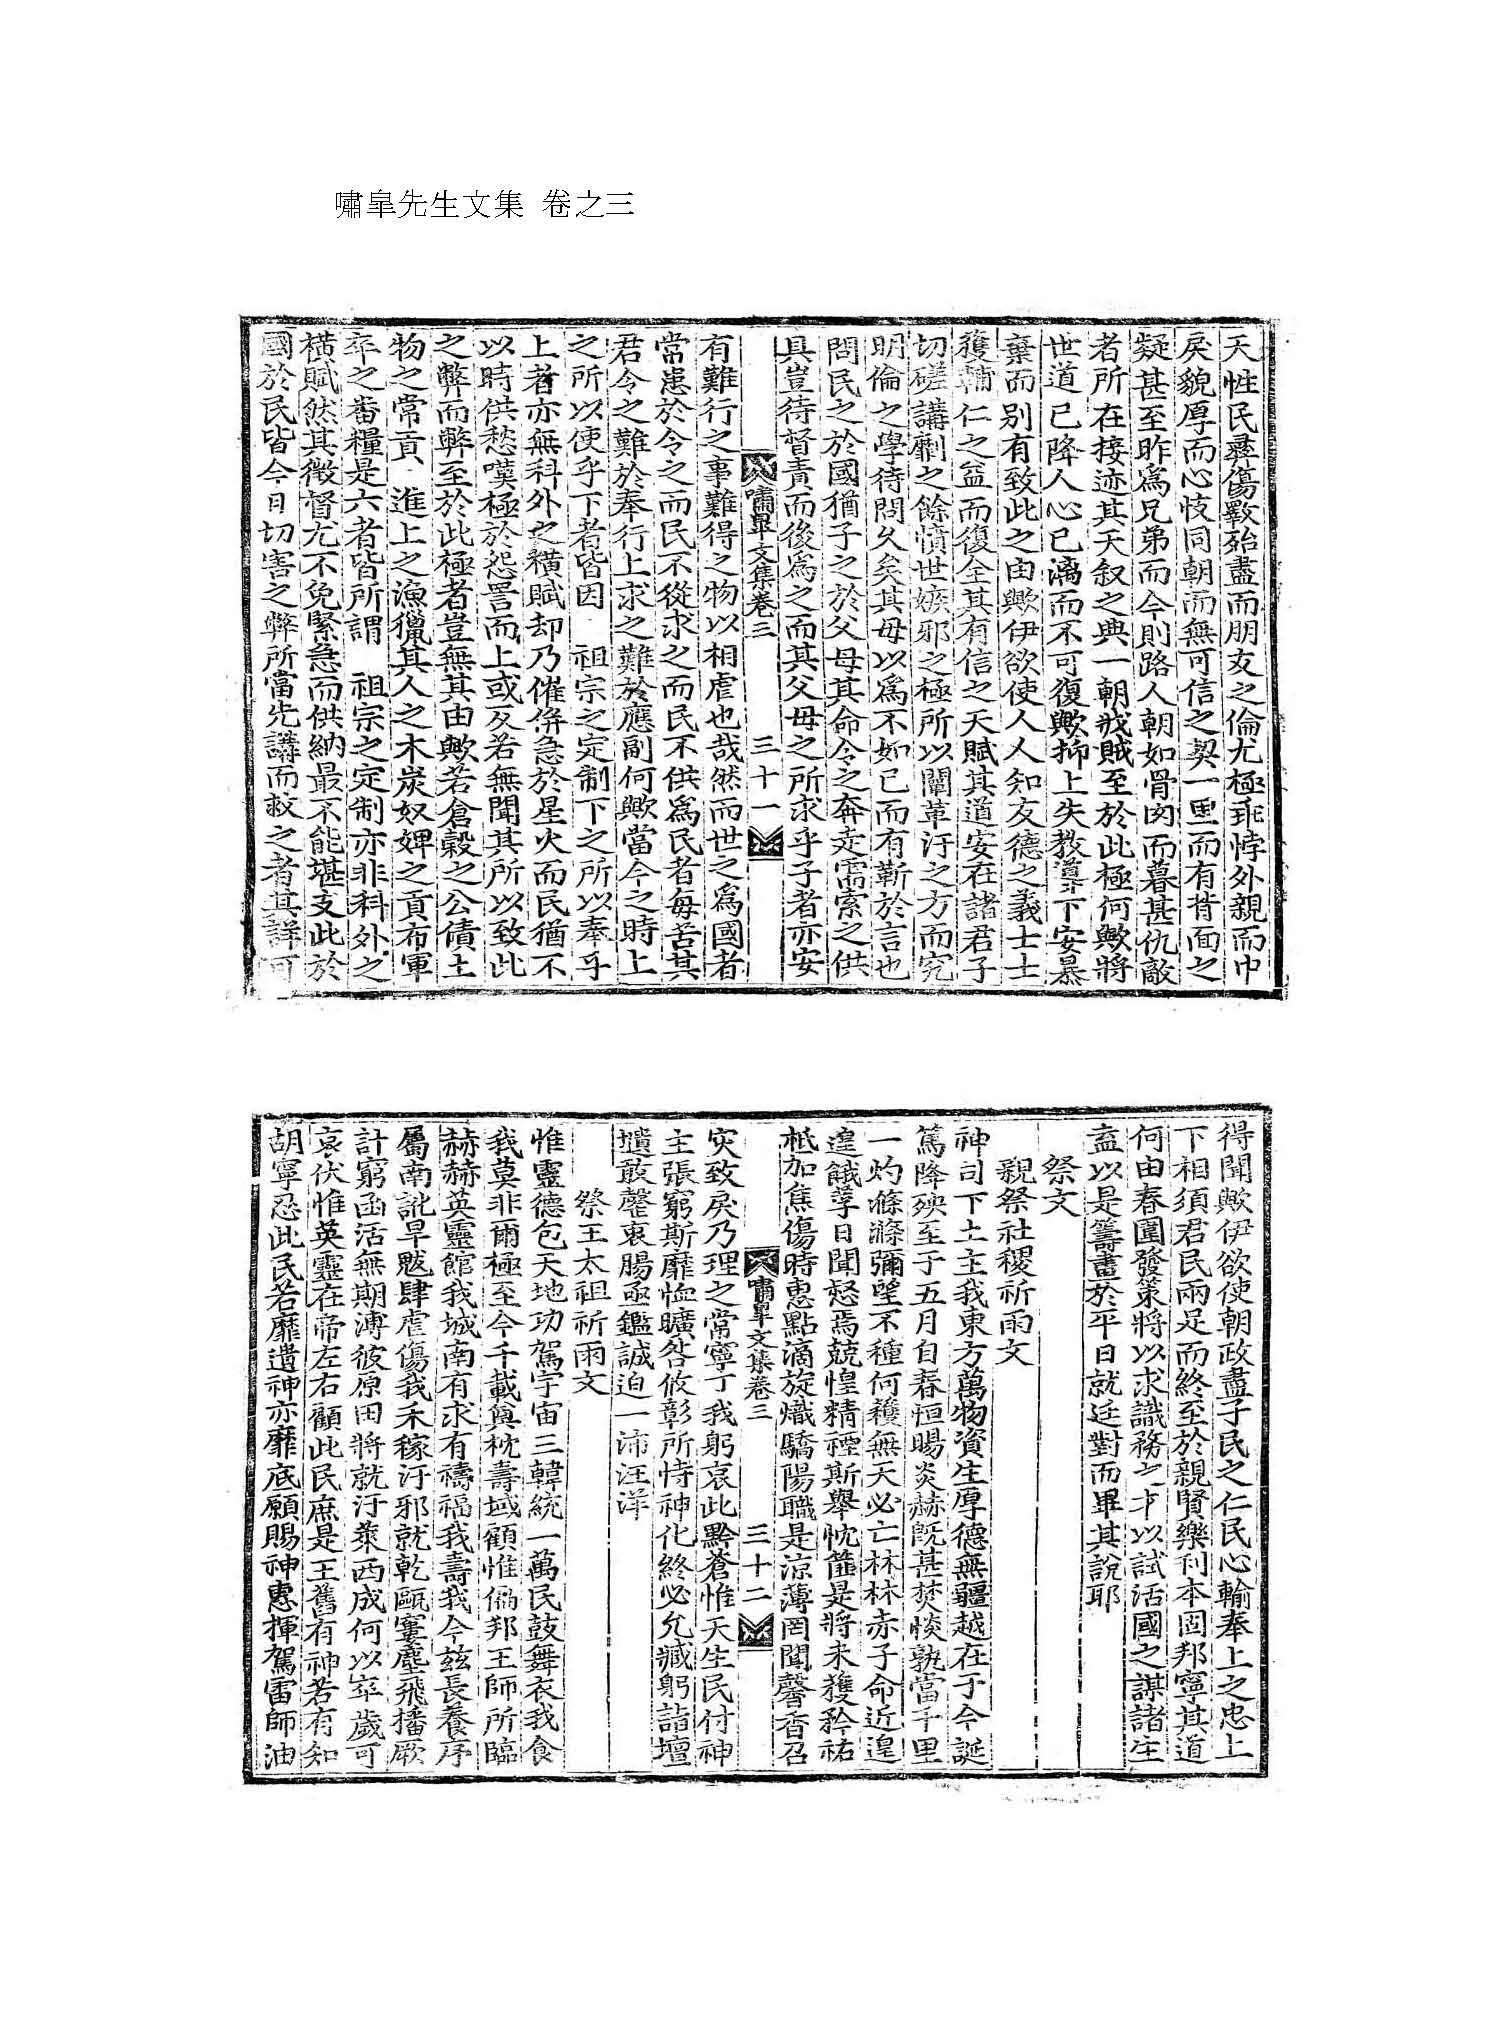 嘯皐先生文集 卷之三
天性民彛傷斁殆盡而朋友之倫尤極乖悖外親而中
戾貌厚而心忮同朝而無可信之契一堊而有背面之
疑甚至昨爲兄弟而今則路人朝如骨肉而暮甚仇敵
者所在接迹其天叙之典一朝戕賊至於此極何歟將
世道已降人心已漓而不可復歟抑上失教導下安暴
棄而别有致此之由歟伊欲使人人知友德之義士士
獲輔仁之益而復全其有信之天賦其道安在諸君子
切磋講劘之餘憤世嫉邪之極所以闡革汙之方而究
明倫之學待問久矣其毋以爲不如已而有靳於言也
問民之於國猶子之於父母其命令之奔走需索之供
具豈待督責而後爲之而其父母之所求乎子者亦安
嘯皐文集卷三 三十一
有難行之事難得之物以相虐也哉然而世之爲國者
常患於令之而民不從求之而民不供爲民者每苦其
君令之難於奉行上求之難於應副何歟當今之時上
之所以使乎下者皆因 祖宗之定制下之所以奉乎
上者亦無科外之橫賦却乃催倂急於星火而民猶不
以時供愁嘆極於怨詈而上或反若無聞其所以致此
之弊而弊至於此極者豈無其由歟若倉穀之公債土
物之常貢 進上之漁獵其人之木炭奴婢之貢布軍
卒之番糧是六者皆所謂 祖宗之定制亦非科外之
橫賦然其徵督尤不免緊急而供納最不能堪支此於
國於民皆今日切害之弊所當先講而救之者其詳可
得聞歟伊欲使朝政盡子民之仁民心輸奉上之忠上
下相須君民兩足而終至於親賢樂利本固邦寧其道
何由春圍發策將以求識務之才以試活國之謀諸生
盍以是籌畫於平日就廷對而畢其說耶
祭文
親祭社稷祈雨文
神司下土主我東方萬物資生厚德無疆越在于今誕
篤降殃至于五月自春恒暘炎赫旣甚焚惔孰當千里
一灼滌滌彌望不種何穫無天必亡林林赤子命近遑
遑餓莩日聞愍焉兢惶精禋斯舉忱籲是將未獲矜祐
柢加焦傷時惠點滴旋熾驕陽職是涼薄罔聞馨香召
嘯皐文集卷三 三十二
灾致戾乃理之常寧丁我躬哀此黔蒼惟天生民付神
主張窮斯靡恤曠咎攸彰所恃神化終必允臧躬詣壇
壝敢罄衷腸亟鑑誠迫一沛汪洋
祭王太祖祈雨文
惟靈德包天地功駕宇宙三韓統一萬民鼓舞衣我食
我莫非爾極至今千載奠枕壽域顧惟僞邦王師所臨
赫赫英靈館我城南有求有禱福我壽我今兹長養序
屬南訛旱魃肆虐傷我禾稼汙邪就乾甌窶塵飛播厥
計窮函活無期溥彼原田將就汙萊西成何以卒歲可
哀伏惟英靈在帝左右顧此民庶是王舊有神若有知
胡寧忍此民若靡遺神亦靡底願賜神惠揮駕雷師油